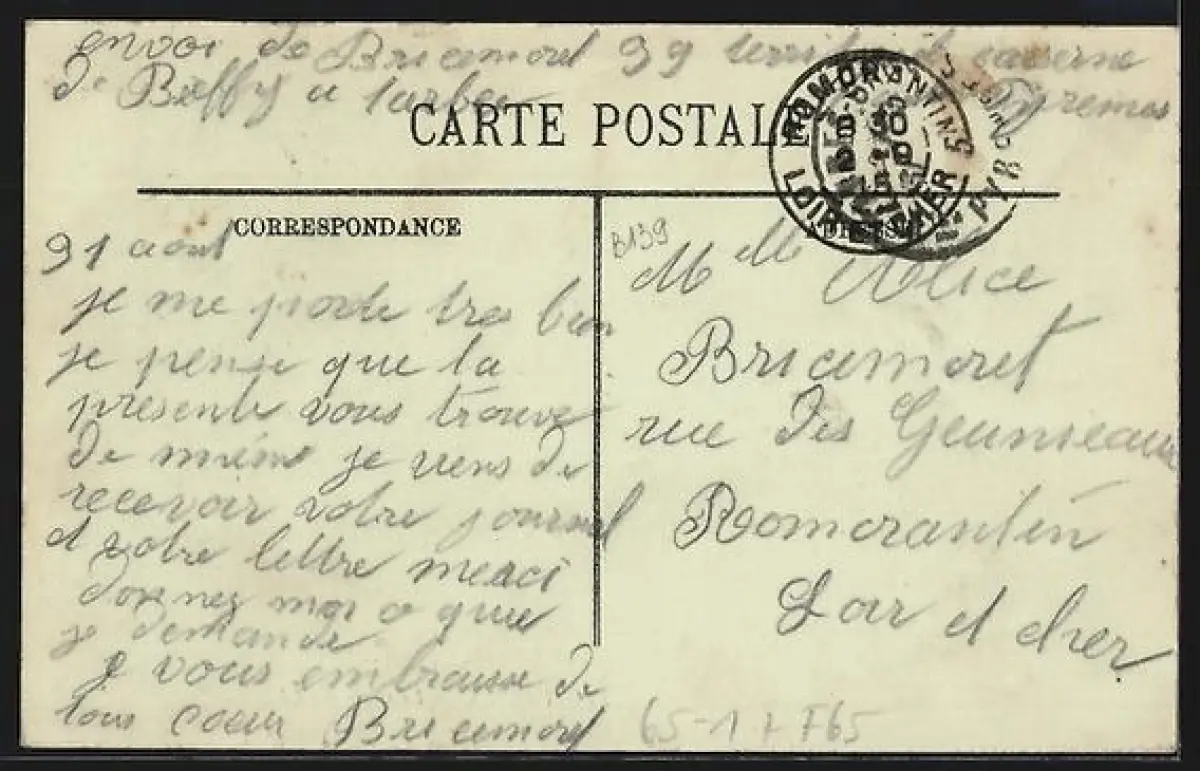 envoi de Bricemoret 99 territorial caserne
de Beffy a tarbes Pyremes
CARTE POSTALE
ROMORANTIN
LOIR CHER
CORRESPONDANCE
31 aout
je me porte tres bien
je pense que la
presente vous trouve
de mieme je viens de
recevoir votre journal
et votre lettre merci
donnez moi ce que
je demande
je vous embrasse de
tous coeur Bricemoret
B139
M Mlle Alice
Bricemoret
rue Des
Romorantin
Loir et cher
65-1 7 F65